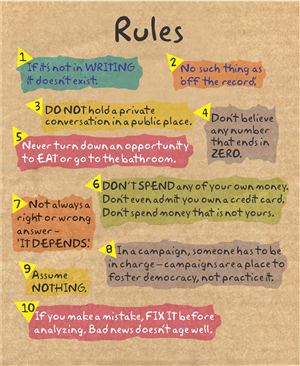 Rules
1
If it's not in WRITING
it doesn't exist.
2
No such thing as
'off the record.'
3
DO NOT hold a private
conversation in a public place.
4
Don't believe
any number
that ends in
ZERO.
5
Never turn down an opportunity
to EAT or go to the bathroom.
6
DON'T SPEND any of your own money.
Don't even admit you own a credit card.
Don't spend money that is not yours.
7
Not always a
right or wrong
answer –
'IT DEPENDS.'
8
In a campaign, someone has to be
in charge – campaigns are a place to
foster democracy, not practice it.
9
Assume
NOTHING.
10
If you make a mistake, FIX IT before
analyzing. Bad news doesn't age well.